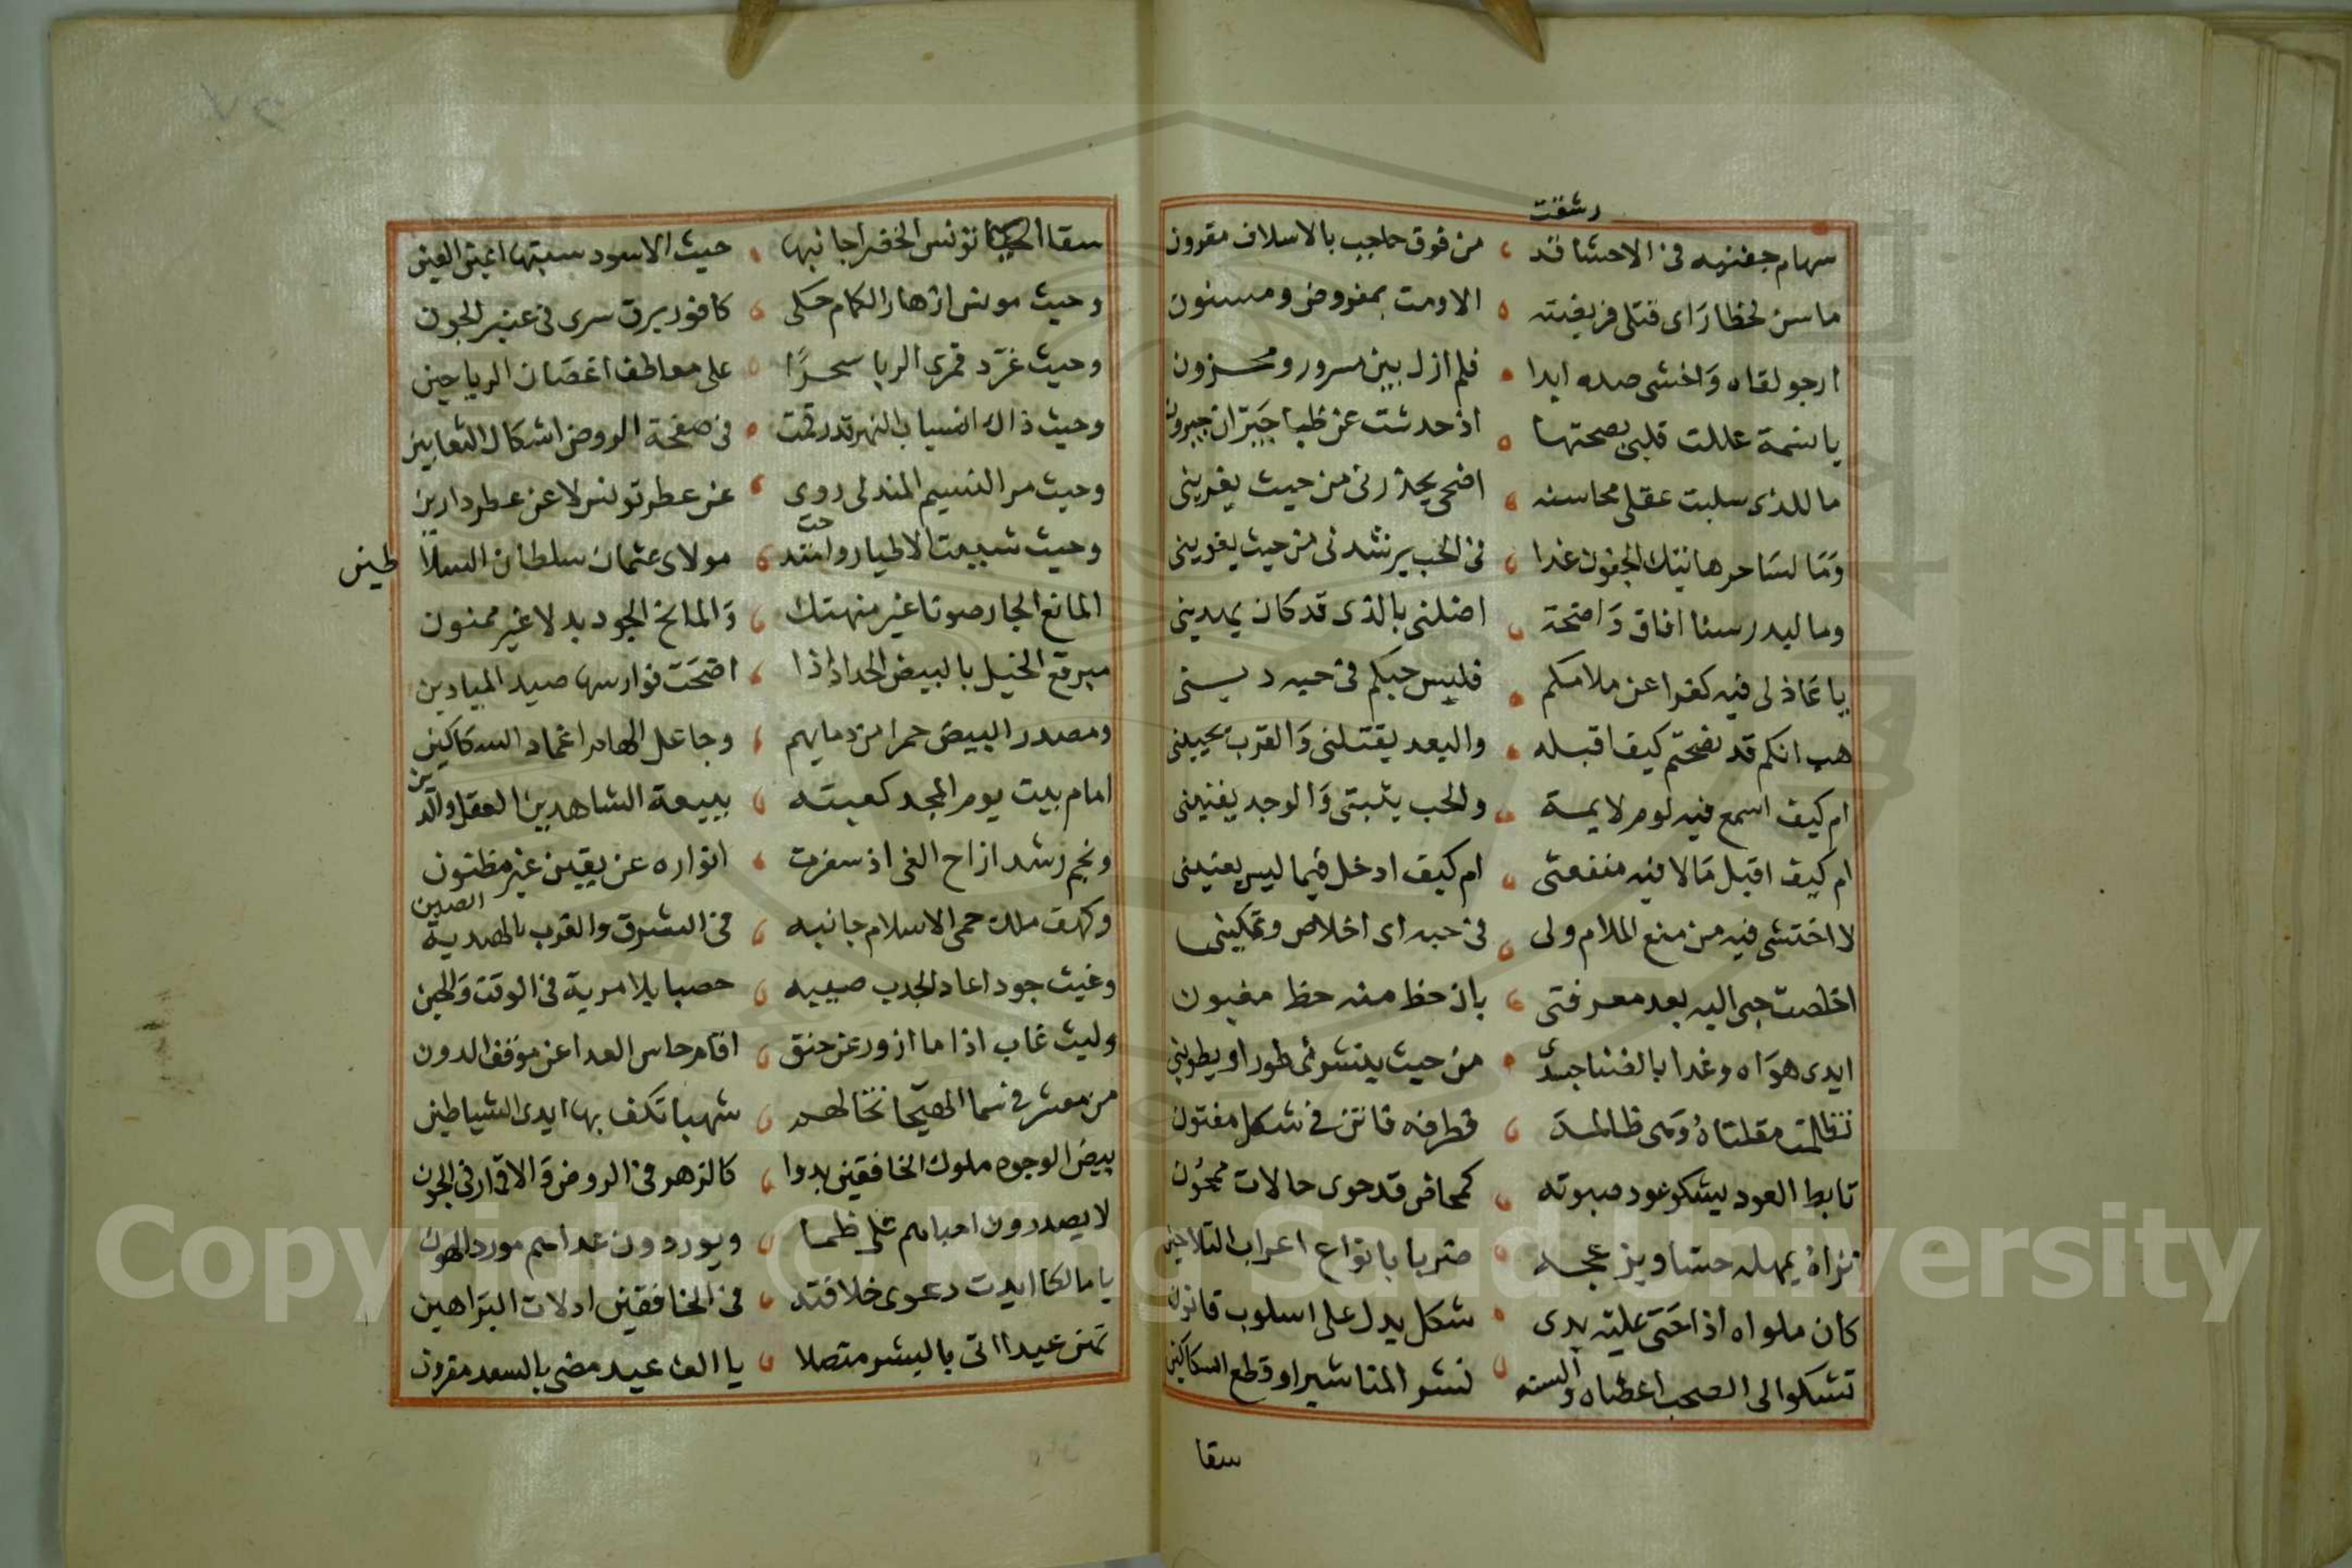 رشقت
سهام جفنيه فى الاحشا قد ، من قوق حاجب بالاسلاف مقرون
ما سن لحظا راى قتلى فريضته ، الا ومت بمفروض ومسنون
ارجو لقاه وَاخشى صده ابدا ، فلم ازل بين مسرور ومحزون
يا نسمة عللت قلبى بصحتها ، اذ حدثت عن ظبا جَيرَان جيرون
ما للذى سلبت عقلى محاسنه ، اضحى يحذرنى من حيث يغرينى
وَمَا لسَاحر هاتيك الجفون غدا ، فى الحب يرشدنى من حيث يغوينى
وما لبدر سنا افاق وَاضحة ، اضلنى بالذى قد كان يهدينى
يا عَاذلى فيه كفوا عن ملامكم ، فليس حبكم فى حبه دينى
هب انكم قد نصحتم كيف اقبله ، والبعد يقتلنى وَالقرب يحيينى
ام كيف اسمع فيه لوم لايمة ، والحب يثبتى وَالوجد يفنينى
ام كيف اقبل مَا لا فيه منفعتى ، ام كيف ادخل فيما ليس يعنينى
لا اختشى فيه من منع الملام ولى ، فى حبه اى اخلاص وتمكينى
اخلصت حبى اليه بعد معرفتى ، بان حظ منه حظ مغبون
ابدى هوَاه وغدا بالفنا جسدى ، من حيث ينشرنى طورا ويطوينى
تظلمت مقلتاهُ وَهى ظالمة ، فطرفه فاتن فى شكل مفتون
تابط العود ليشكو عود صبوته ، كمحاض قد حوى حالات ممحُون
تراهُ يمهله حينا ويزعجه ، ضربا بانواع اعراب التلاحين
كان ملواه اذا حَنى عليه يدى ، شكل يدل على اسلوب قانون
تشكوا الى الصحب اعضاه والسنه ، نشر المناشير او قطع السكاكين
سقا
سقا الحيا تونس الخضرا جانبها ، حيث الاسود سبتها اعين العين
وحيث مونس ازهار الكمام حكى ، كافور برق سرى فى عنبر الجون
وحيث غرّد قمرى الربا سحرًا ، على معاطف اغصَان الرياحين
وحيث ذاك انسياب النهر قد رقمت ، فى صفحة الروض اشكال الثعابين
وحيث مر النسيم المندلى روى ، عن عطر تونس لا عن عطر دارين
وحيث شببت الاطيار وامتدحت ، مولاى عثمان سلطان السلاطين
المانع الجار صوتا غير منهتك ، وَالمانح الجود بدلا غير ممنون
مبرقع الخيل بالبيض الحداد اذا ، اضحَت فوارسها صيد الميادين
ومصدر البيض حمرا من دمايهم ، وجاعل الهام اغماد السكاكين
امام بيت يوم المجد كعبته ، ببيعة الشاهدين العقل والدين
ونجم رشد ازاح الغى اذ سفرت ، انواره عن يقين غير مظنون
وكهف ملك حمى الاسلام جانبه ، فى الشرق والغرب بالهندية الصين
وغيث جود اعاد الجدب صيبه ، خصبا بلا مرية فى الوقت وَالحين
وليث غاب اذا ما ازور عن حنق ، اقام حاس العدا عن موقف الدون
من معشر فى سما الهيجا تخالهم ، شهبا تكف بها ايدى الشياطين
بيض الوجوه ملوك الخافقين بدوا ، كالزهر فى الروض وَالاقمار فى الجون
لا يصدرون احبابهم على ظما ، ويوردون عداهم مورد الهون
يا مالكا ايدت دعوى خلافته ، فى الخافقين ادلات البرَاهين
تهن عيدا اتى بالبشر متصلا ، يا الف عيد مضى بالسعد مقرون
Copyright © King Saud University